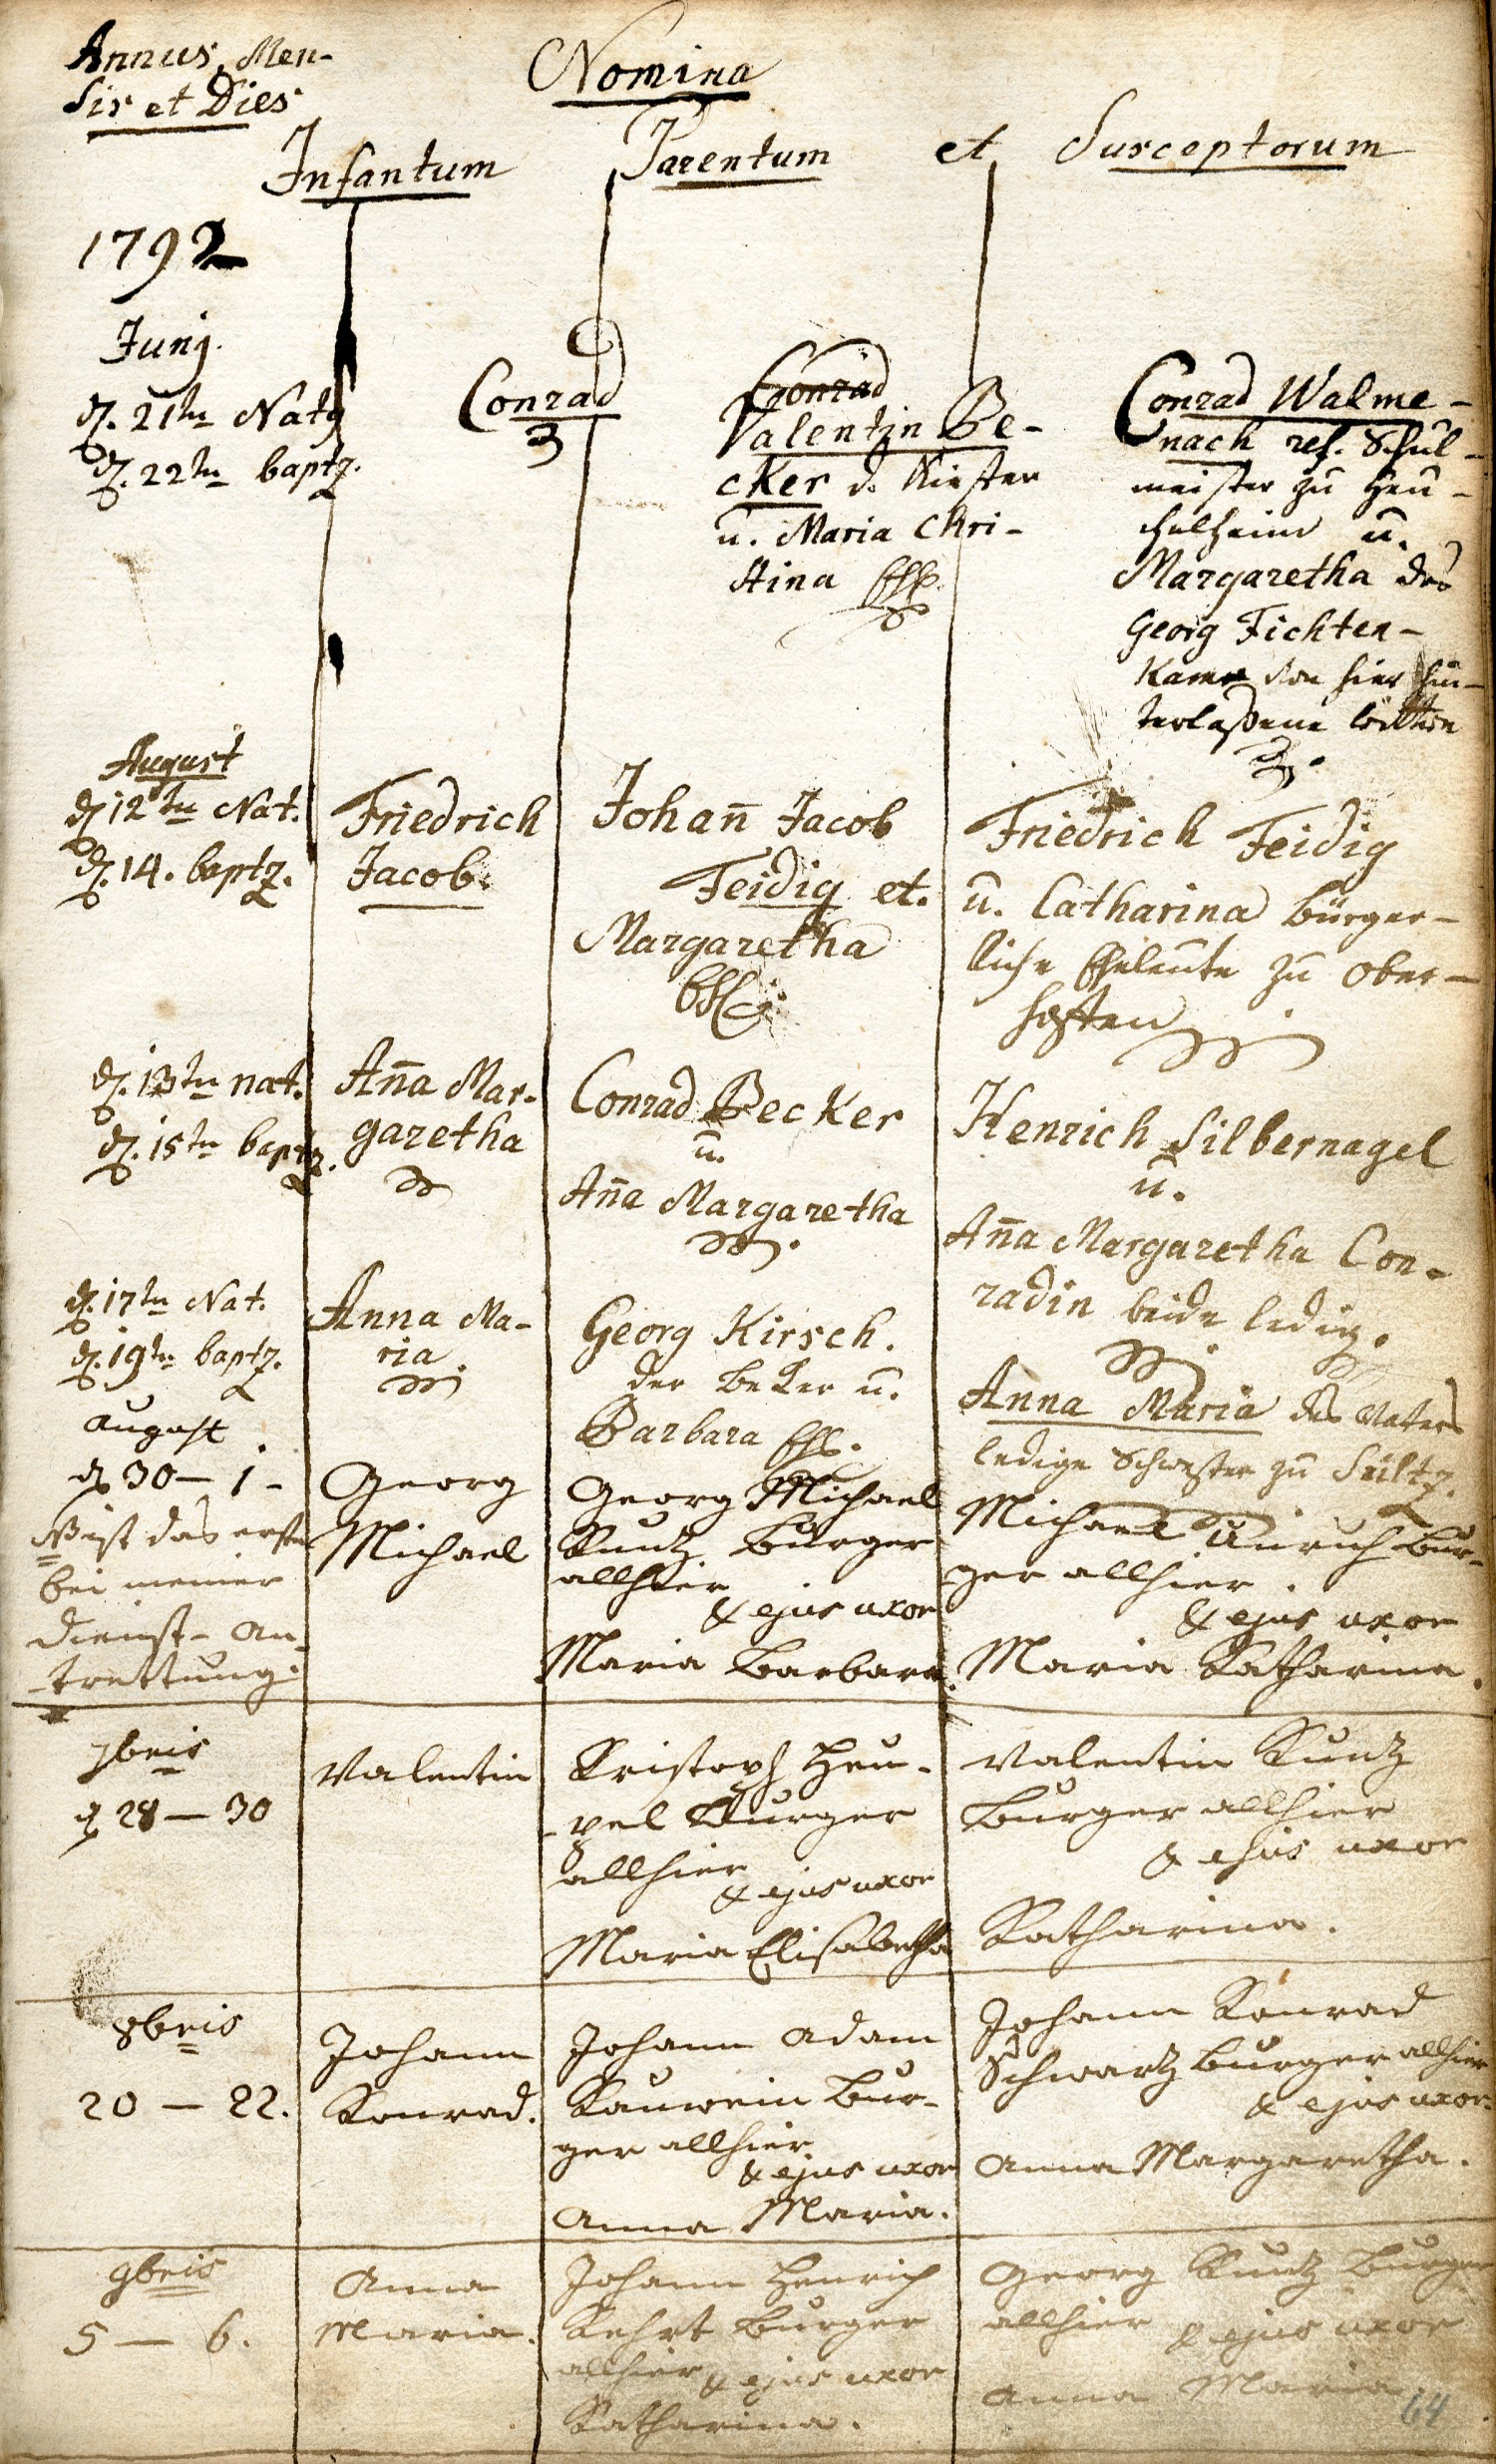 Annus, Men-
sis et Dies
Nomina
Infantum
Parentum et Susceptorum
1792
Junj.
d. 21tn Natq
d. 22tn baptz.
Conrad
Conrad
Valentin Be-
cker d. Kiefter
u. Maria Chri-
stina Ehl.
Conrad Walme-
nach ref. Schul-
meister zu Heu-
chelheim u.
Margaretha des
Georg Fichten-
Kam von hier hin-
terlaßene
August
d. 12tn Nat.
d. 14. baptz.
Friedrich
Jacob.
Johan̄ Jacob
Feidig et.
Margaretha
Ehl.
Friedrich Feidig
u. Catharina bürger-
liche Eheleute zu Ober-
hoffen
d. 13tn nat.
d. 15tn baptz.
An̄a Mar-
garetha
Conrad Becker
u.
An̄a Margaretha
Henrich Silbernagel
u.
An̄a Margaretha Con-
radin beide ledig.
d. 17tn Nat.
d. 19tn baptz.
Anna Ma-
ria.
Georg Kirsch.
der beker u.
Barbara Ehl.
Anna Maria des Vaters
ledige Schwester zu Sültz.
august
d 30 – 1 -
NB ist das erste
bei meiner
Dienst-An-
trettung.
Georg
Michael
Georg Michael
Kuntz Burger
allhier
& ejus uxor
Maria Barbara.
Michael Bur-
ger allhier.
& ejus uxor
Maria Katharina.
7bris
d 28 — 30
Valentin
Kristoph Heu-
pel Burger
allhier
& ejus uxor
Maria Elisabetha
Valentin Kuntz
Burger allhier
& ejus uxor
Katharina.
8bris
20 — 22.
Johann
Konrad.
Johann Adam
Kauwein Bur-
ger allhier
& ejus uxor
Anna Maria.
Johann Konrad
Schwartz Burger allhier
& ejus uxor.
Anna Margaretha.
9bris
5 — 6.
Anna
Maria.
Johann Henrich
Kehrt Burger
allhier & ejus uxor
Katharina.
Georg Kuntz Burger
allhier & ejus uxor
Anna Maria.
64